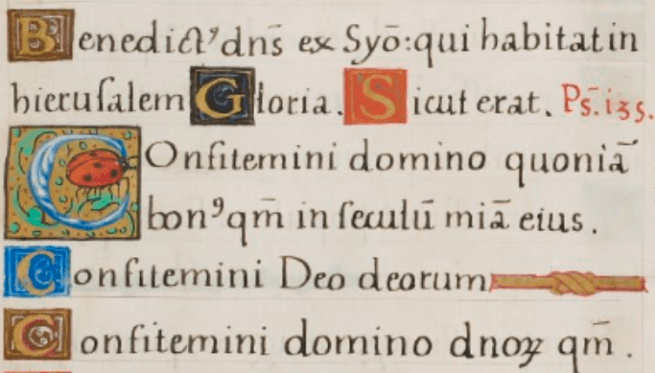 Benedictꝰ dns̄ ex Syō: qui habitat in
hierusalem Gloria. Sicut erat. Ps̄. i35.
COnfitemini domino quoniā
bonꝰ qm̄ in seculū miā eius.
Confitemini Deo deorum
Confitemini domino dnoꝝ qm̄.